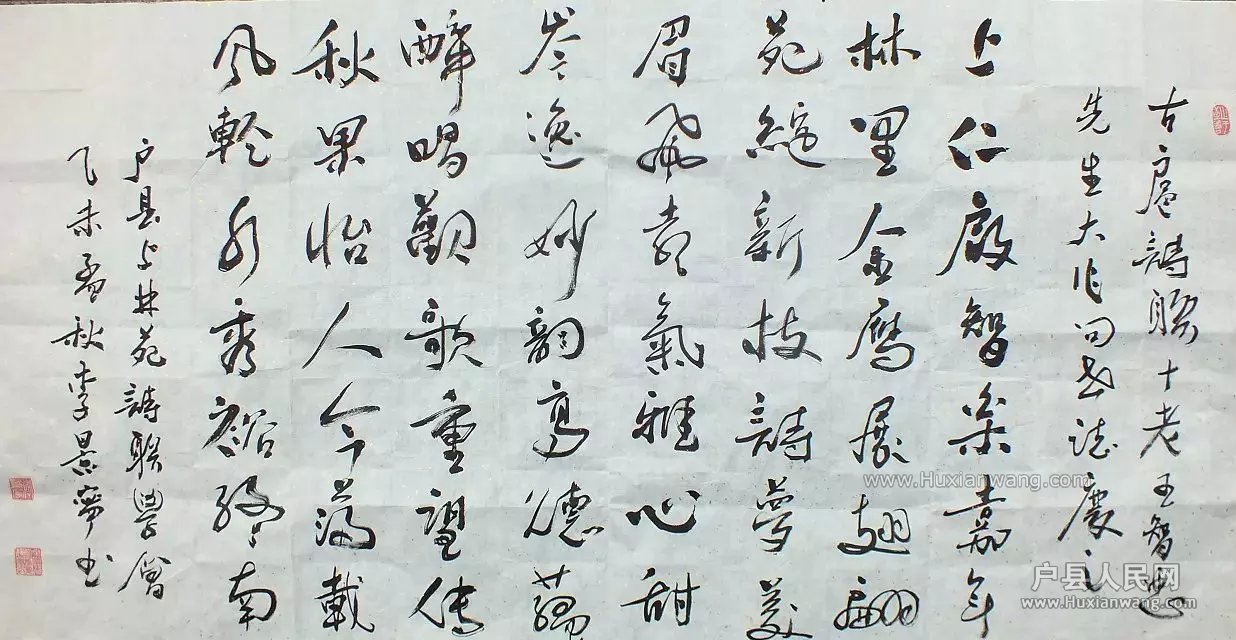 古扈詩联十老王智忠
先生大作问世誌慶之
上仁啟智樂嘉年
林里金鹰展翅翩
苑绝新技詩夢美
眉飛意氣雅心甜
岑逸妙韻高德蔼
醉唱觀歌重望传
秋果怡人今满載
风秀裕终南
户县上林苑詩联學會
乙未孟秋李景寧书
www.Huxianwang.com
户县人民网
www.Huxianwang.com